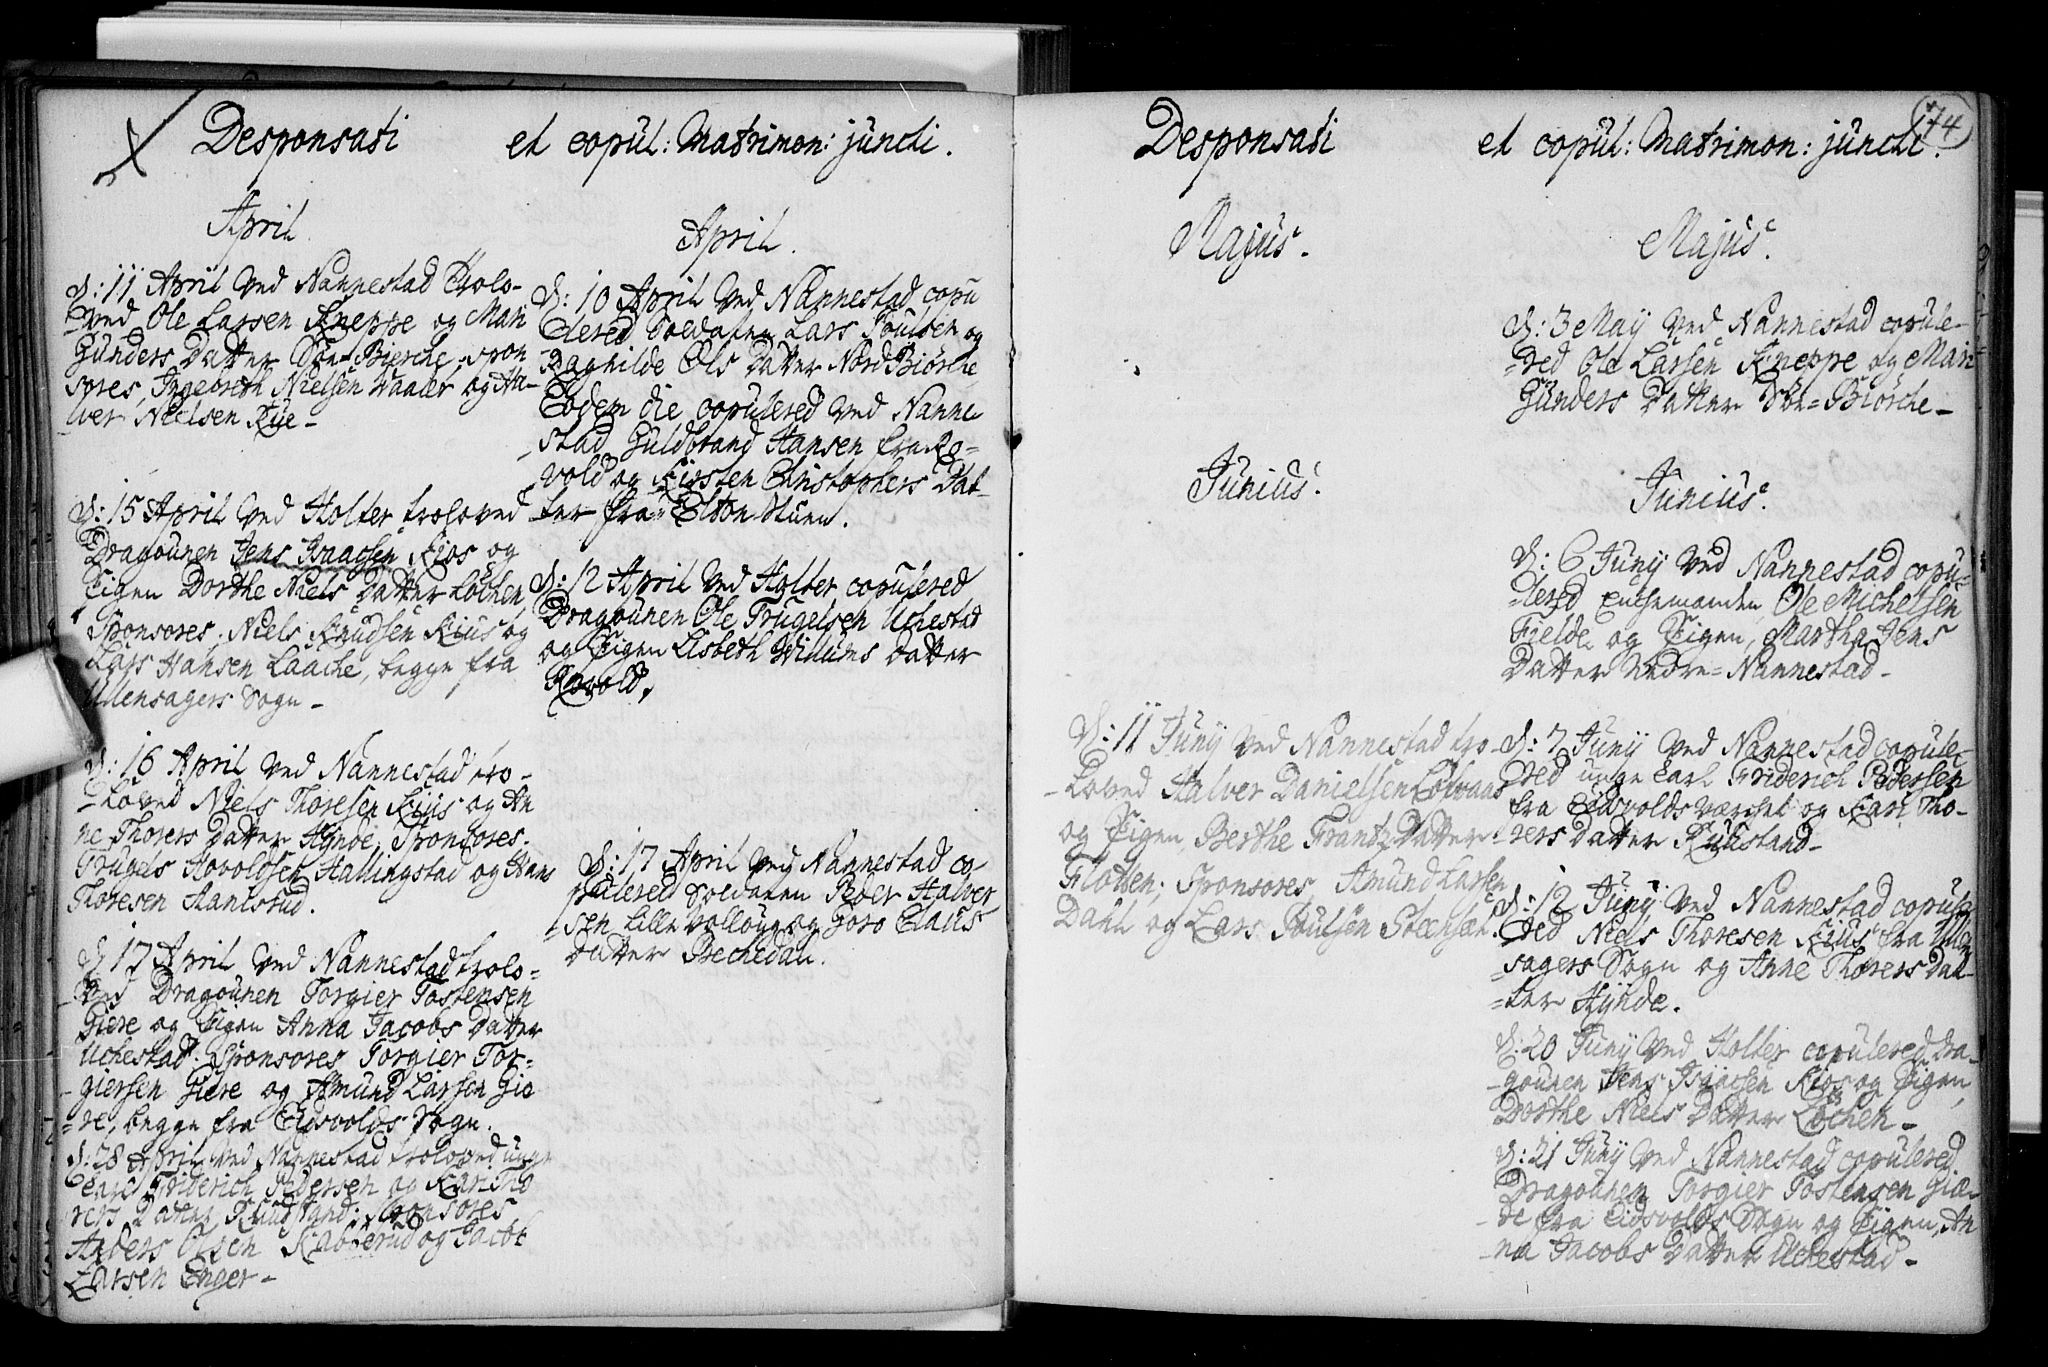 Desponsati
April
D: 11 April ved Nannestad Trolo-
ved Ole Larsen Kneppe og Mari
Gunders Datter Sør-Biørche, spon
sores, Ingebreth Nielsen Waaler og Hal-
wer Nielsen Kiie -
D: 15 April ved Holter troloved
Dragounen Jens Isaacsen Kios og
Pigen Dorthe Niels Datter Løchen,
Sponsores, Niels Knudsen Kius og
Lars Hansen Laache, begge fra
Ullensagers Sogn -
D: 16 April ved Nannestad tro-
=loved Niels Thoresen Kius og An
ne Thorers Datter Hynde, Sponsores.
Trugels Hovoldsen Hallingstad og Hans
Thoresen Aamstud.
D 17 April ved Nannestad trolo=
-ved Dragounen Torgier Tostensen
Giere og Pigen Anna Jacobs Datter
Uchestad. Sponsores Torgier Tor=
-giersen Giere og Amund Larsen Gie
=re, begge fra Eidsvolds Sogn.
D: 28 April ved Nannestad troloved unge
Carl Friderich Pedersen og Kari Tho
rers Datter Ruustand: Sponsores
Anders Olsen Kabberud og Jacob
Larsen Enger -
et copul: Matrimon: juncti.
April.
D: 10 April ved Nannestad copu
lered Soldaten Lars Poulsen og
Raghilde Ols Datter Nord Biørche
Eodem die copulered ved Nanne
stad Guldbrand Hansen fra Ro=
vold og Kirsten Christophers Dat-
ter fra Elton Stuen.
D: 12 April ved Holter copulered
Dragounen Ole Trugelsen Uchestad
og Pigen Lisbeth Willums Datter
Rovold,
D: 17 April ved Nannestad co
pulered Soldaten Peder Halver
sen Lille Walloug og Goro Claus
Datter Bechedal.
74
Desponsati
Majus.
Junius.
D: 11 Juny ved Nannestad tro-
-loved Halver Danielsen Løvaas
og Pigen Berthe Frantz Datter
Flotten; Sponsores, Amund Larsen
Dahl og Lars Poulsen Stechset.
et copul: Matrimon: juncti.
Majus.
D: 3 May ved Nannestad copule-
=red Ole Larsen Kneppe og Mari
Gunders Datter Sør=Biørche -
Junius.
D: 6 Juny ved Nannestad copu=
=lered Enchemanden Ole Michelsen
Fielde og Pigen, Martha Jens
Datter Nedre=Nannestad -
D: 7 Juny ved Nannestad copule=
red unge Carl Friderich Pedersen
fra Eidsvolds Værchet og Kari Tho-
=rers Datter Ruustand -
D: 12 Juny ved Nannestad copule
red Niels Thoresen Kius fra Ullen
=sagers Sogn og Anne Thorers Dat-
=ter Hynde.
D: 20 Juny ved Holter copulered Dra-
-gounen Jens Isaacsen Kios og Pigen,
Dorthe Niels Datter Løchen -
D: 21 Juny ved Nannestad copulered
Dragounen Torgier Tostensen Gie-
-re fra Eidsvolds Sogn og Pigen, An
-na Jacobs Datter Uchestad -